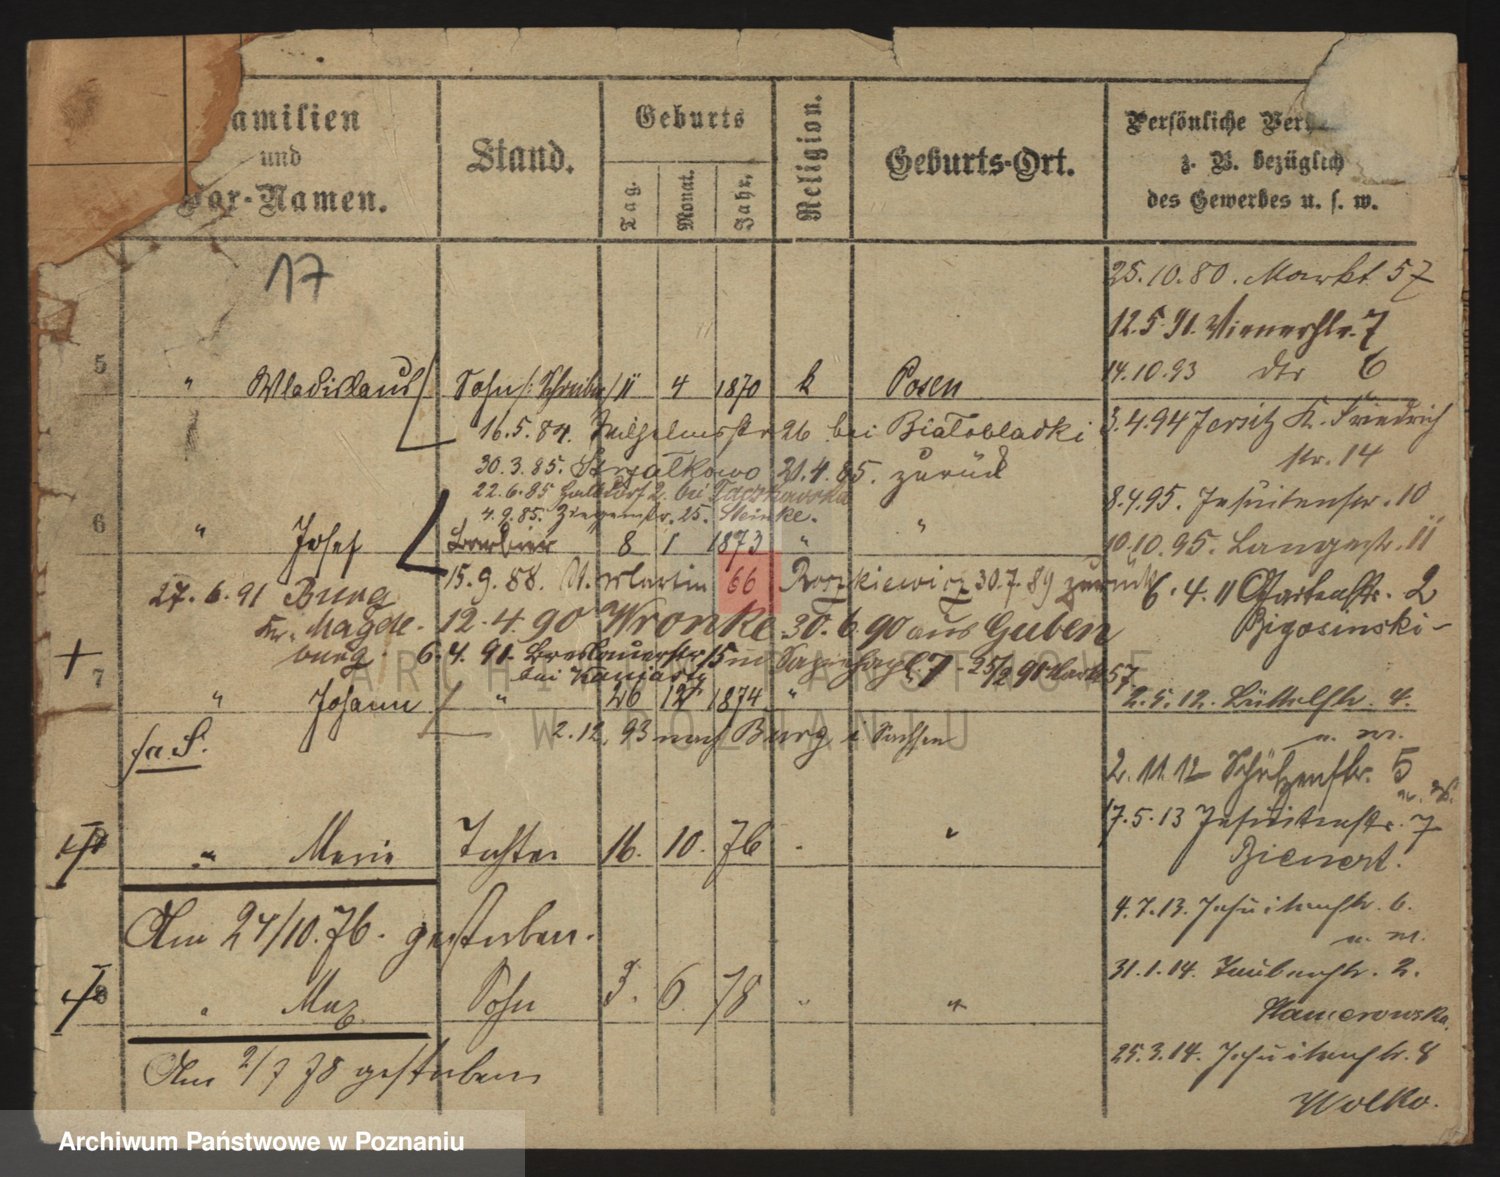 amilien
und
Vor-Namen.
Stand.
Geburts
Tag.
Monat.
Jahr.
Religion.
Geburts-Ort.
Persönliche Ver
z. B. bezüglich
des Gewerbes u. s. w.
17
25.10.80. Markt 57
12.5.91. Wienerstr. 7
14.10.93 dto 6
5 " Wladislaus Sohn /: Schreiber 11 4 1870 k Posen
3.4.94 Jersitz K. Friedrich
str. 14
16.5.84. Wilhelmsstr 26 bei Bialobladki
30.3.85. Strzalkowo 21.4.85. zurück
22.6.85 Halbdorf 2. bei
4.9.85. Ziegenstr. 25. Steinke.
8.4.95. Jesuitenstr. 10
6 " Josef Barbier 8 1 1873 " "
10.10.95. Langestr. 11
15.9.88. St. Martin 66 Roszkiewicz 30.7.89 zurück
6.4.11 Gartenstr. 2
Bigosinski
27.6.91 Burg
Kr. Magde-
burg.
12.4.90 Wronke 30.6.90 aus Guben
6.4.91. Breslauerstr 15 Sapiehapl. 7 - 25/2 91 Markt 57
bei
7 " Johann " 26 12 1874 "
2.5.12. Büttelstr. 4.
2.12.93 nach Burg i Sachsen
fa. S.
2.11.12 Schützenstr. 5
17.5.13 Jesuitenstr. 7
Bienert.
" Marie Tochter 16. 10. 76 "
Am 24/10.76. gestorben.
4.7.13. Jesuitenstr. 6.
31.1.14. Taubenstr. 2.
8 " Max Sohn 3. 6. 78 " "
25.3.14. Jesuitenstr. 8
Wolko.
Am 2/7 78 gestorben
ARCHIWUM PAŃSTWOWE
W POZNANIU
Archiwum Państwowe w Poznaniu